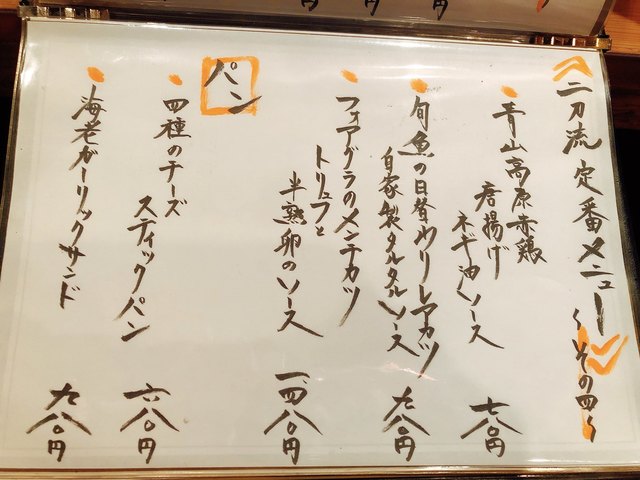 二刀流 定番メニュー 〜その四〜
青山高原赤鶏
唐揚げ
ネギ油ソース
七八〇円
旬魚の日替わりレアカツ
自家製タルタルソース
九八〇円
フォアグラのメンチカツ
トリュフと
半熟卵のソース
一、四八〇円
パン
四種のチーズ
スティックパン
六八〇円
海老ガーリックサンド
九八〇円